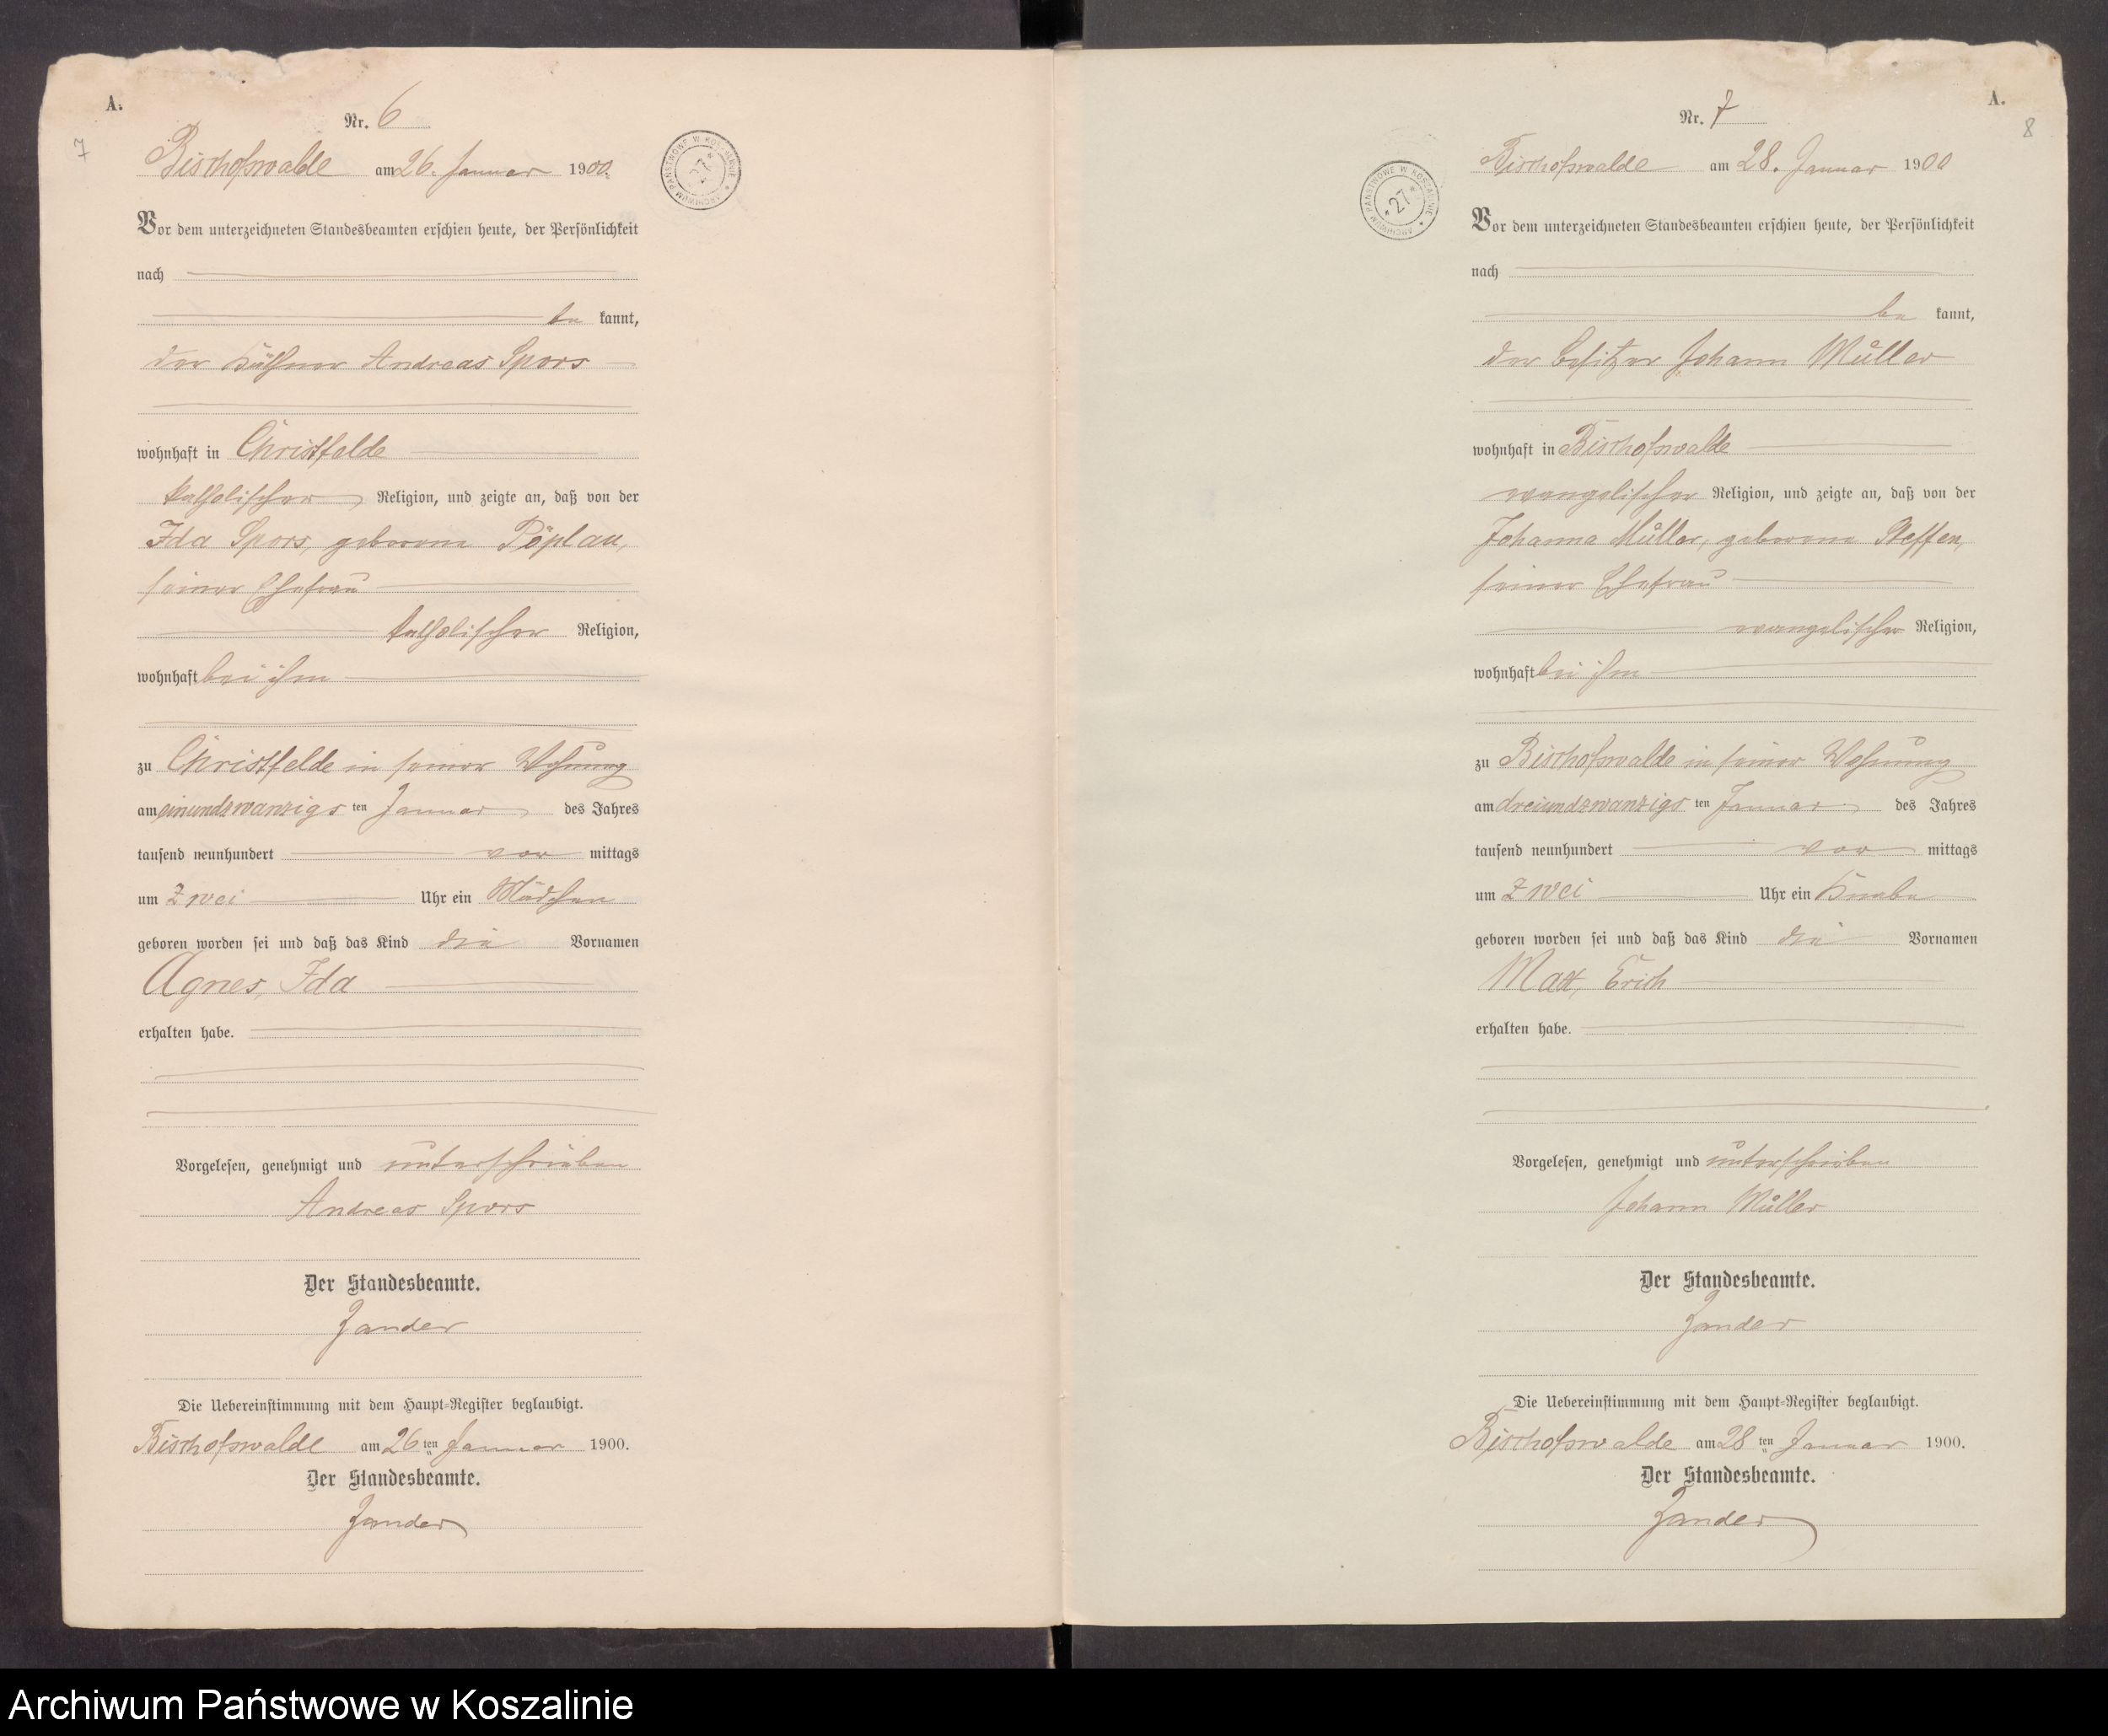 A.
7
Nr. 6
Bischofswalde am 26. Januar 1900.
ARCHIWUM PAŃSTWOWE W KOSZALINIE * 27 *
Vor dem unterzeichneten Standesbeamten erschien heute, der Persönlichkeit
nach
be kannt,
der Käthner Andreas Spors
wohnhaft in Christfelde
katholischer Religion, und zeigte an, daß von der
Ida Spors, geborene Pöplau,
seiner Ehefrau
katholischer Religion,
wohnhaft bei ihm
zu Christfelde in seiner Wohnung
am einundzwanzigs ten Januar des Jahres
tausend neunhundert vor mittags
um zwei Uhr ein Mädchen
geboren worden sei und daß das Kind die Vornamen
Agnes, Ida
erhalten habe.
Vorgelesen, genehmigt und unterschrieben
Andreas Spors
Der Standesbeamte.
Zander
Die Uebereinstimmung mit dem Haupt-Register beglaubigt.
Bischofswalde am 26 ten Januar 1900.
Der Standesbeamte.
Zander
A.
8
Nr. 7
Bischofswalde am 28. Januar 1900
ARCHIWUM PAŃSTWOWE W KOSZALINIE * 27 *
Vor dem unterzeichneten Standesbeamten erschien heute, der Persönlichkeit
nach
be kannt,
der Besitzer Johann Müller
wohnhaft in Bischofswalde
evangelischer Religion, und zeigte an, daß von der
Johanna Müller, geborene Steffen,
seiner Ehefrau
evangelischer Religion,
wohnhaft bei ihm
zu Bischofswalde in seiner Wohnung
am dreiundzwanzigs ten Januar des Jahres
tausend neunhundert vor mittags
um zwei Uhr ein Knabe
geboren worden sei und daß das Kind die Vornamen
Max, Erich
erhalten habe.
Vorgelesen, genehmigt und unterschrieben
Johann Müller
Der Standesbeamte.
Zander
Die Uebereinstimmung mit dem Haupt-Register beglaubigt.
Bischofswalde am 28 ten Januar 1900.
Der Standesbeamte.
Zander
Archiwum Państwowe w Koszalinie